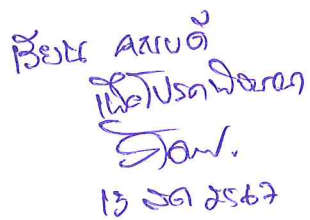 เรียน คณบดี
เพื่อโปรดพิจารณา
13 มีค 2567